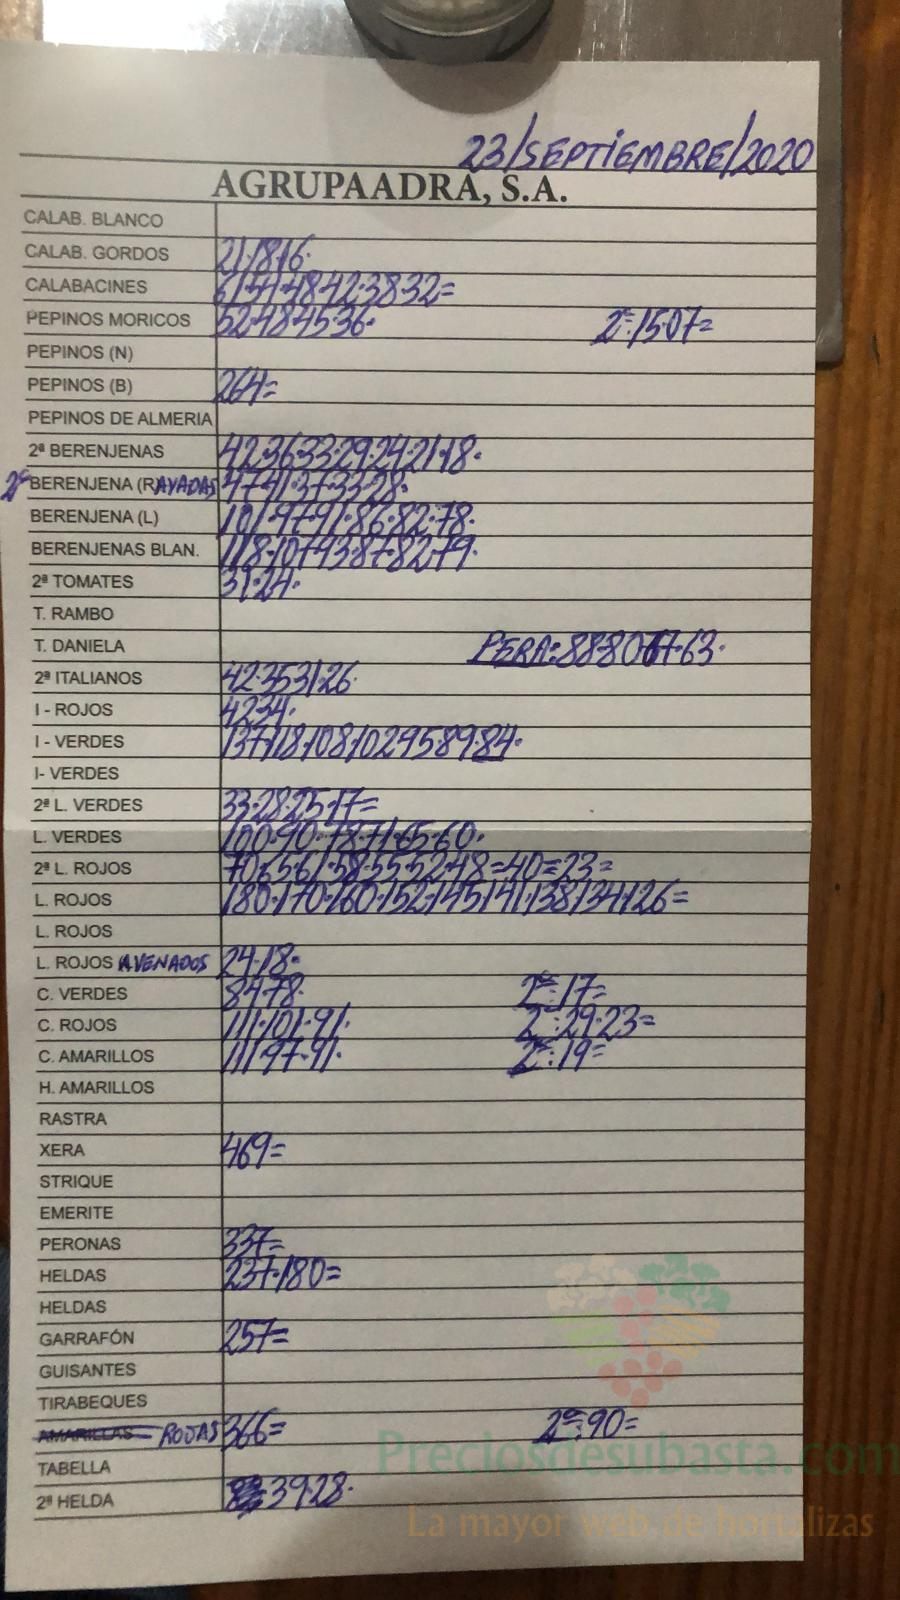 23/SEPTIEMBRE/2020
AGRUPAADRA, S.A.
CALAB. BLANCO
CALAB. GORDOS 21·18·16·
CALABACINES 61·51·48·42·38·32=
PEPINOS MORICOS 52·48·45·36· 2ª:15·07=
PEPINOS (N)
PEPINOS (B) 264=
PEPINOS DE ALMERIA
2ª BERENJENAS 42·36·33·29·24·21·18·
2ª BERENJENA (RAYADAS 47·41·37·33·28·
BERENJENA (L) 101·97·91·86·82·78·
BERENJENAS BLAN. 118·107·93·87·82·79·
2ª TOMATES 31·24·
T. RAMBO
T. DANIELA PERA:88·80·67·63·
2ª ITALIANOS 42·35·31·26·
I - ROJOS 42·34·
I - VERDES 137·118·108·102·95·89·84·
I- VERDES
2ª L. VERDES 33·28·25·17=
L. VERDES 100·90·78·71·65·60·
2ª L. ROJOS 70·65·61·58·55·52·48=40=23=
L. ROJOS 180·170·160·152·145·141·138·134·126=
L. ROJOS
L. ROJOS AVENADOS 24·18·
C. VERDES 84·78· 2ª:17=
C. ROJOS 111·101·91· 2ª:29·23=
C. AMARILLOS 111·97·91· 2ª:19=
H. AMARILLOS
RASTRA
XERA 469=
STRIQUE
EMERITE
PERONAS 337=
HELDAS 237·180=
HELDAS
GARRAFÓN 257=
GUISANTES
TIRABEQUES
AMARILLAS ROJAS 366= 2ª:90=
TABELLA
2ª HELDA 39·28·
Preciosdesubasta.com
La mayor web de hortalizas